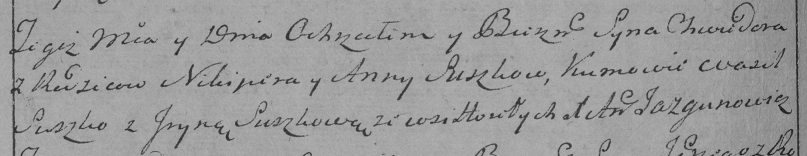 Tegiż Mca y Dnia Ochrzciłem y Bierzm Syna Chwedora
z Rodzicow Nikipera y Anny Suszkow, Kumowie Wasil
Suszko z Iryną Suszkową ze wsi X An Jazgunowicz